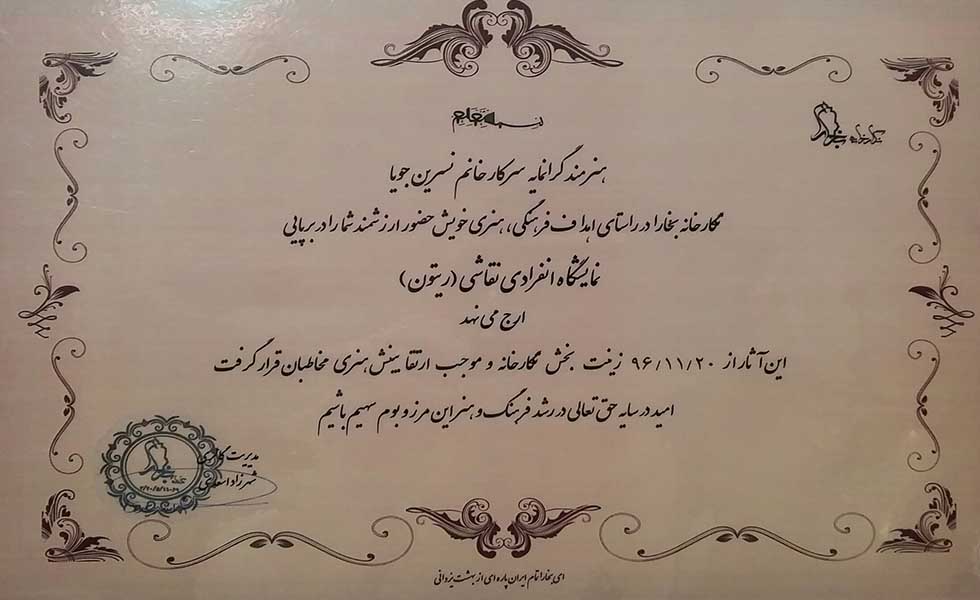 هنرمند گرانمایه سرکار خانم نسرین جویا
نگارخانه بخارا در راستای اهداف فرهنگی، هنری خویش حضور ارزشمند شما را در برپایی
نمایشگاه انفرادی نقاشی (ریتون)
ارج می نهد
این آثار از ۹۶/۱۱/۲۰ زینت بخش نگارخانه و موجب ارتقا بینش هنری مخاطبان قرار گرفت
امید در سایه حق تعالی در رشد فرهنگ و هنر این مرز و بوم سهیم باشیم
مدیریت
شهرزاد
ای بخارا تمام ایران پاره ای از بهشت یزدانی